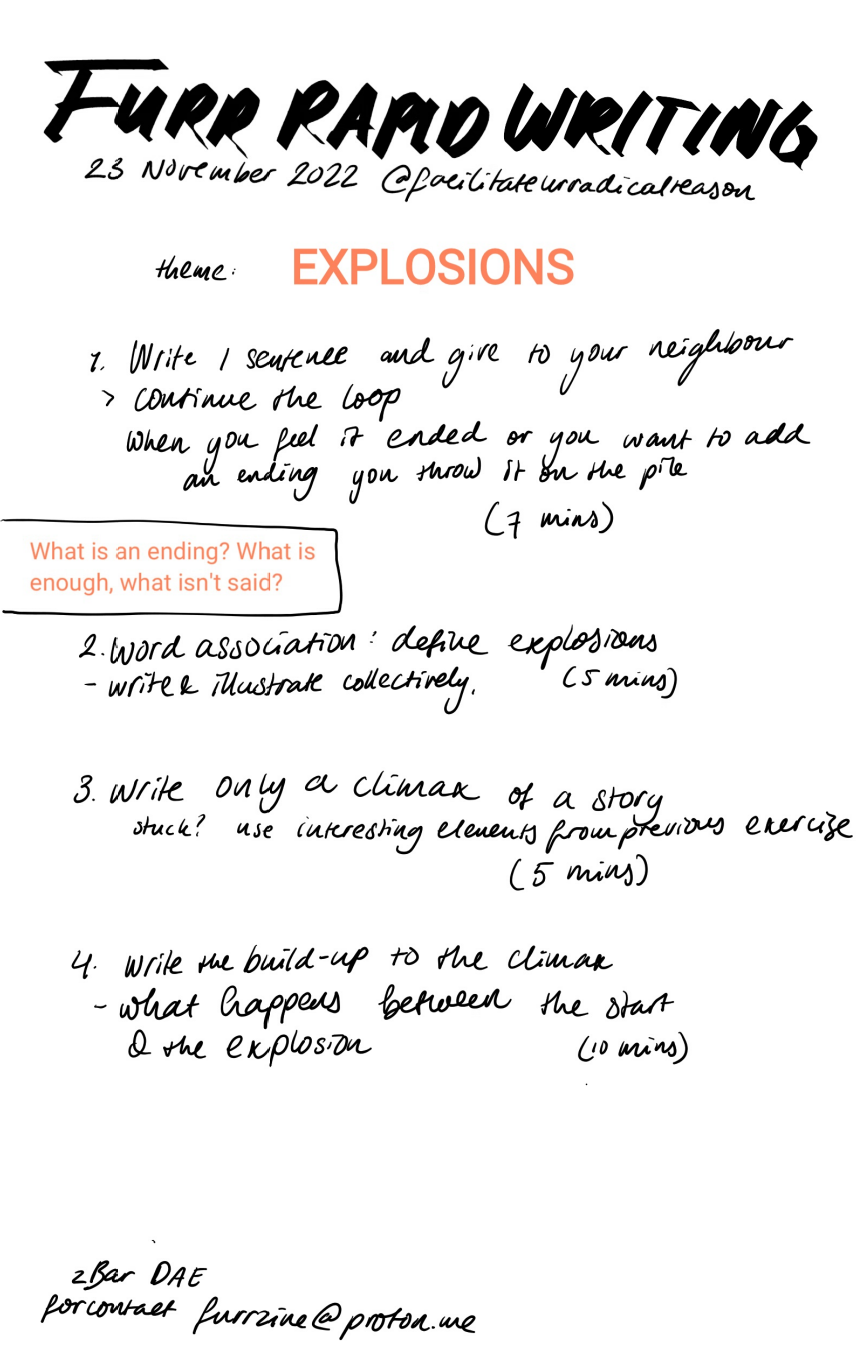 FURR RAPID WRITING
23 November 2022 @facilitateurradicalreason
theme: EXPLOSIONS
1. Write 1 sentence and give to your neighbour
> continue the loop
when you feel it ended or you want to add
an ending you throw it on the pile
(7 mins)
What is an ending? What is
enough, what isn't said?
2. word association: define explosions
- write & illustrate collectively. (5 mins)
3. write only a climax of a story
stuck? use interesting elements from previous exercize
(5 mins)
4. write the build-up to the climax
- what happens between the start
& the explosion (10 mins)
2Bar DAE
for contact furrzine@proton.me